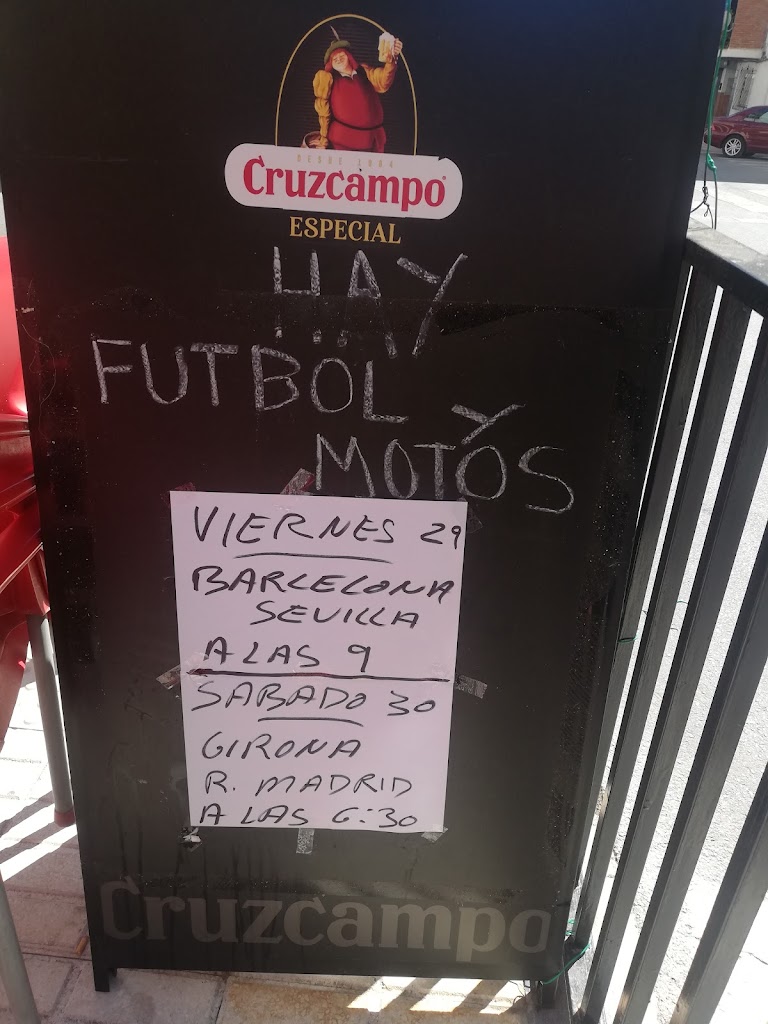 DESDE 1904
Cruzcampo
ESPECIAL
HAY
FUTBOL Y
MOTOS
VIERNES 29
BARCELONA
SEVILLA
A LAS 9
SABADO 30
GIRONA
R. MADRID
A LAS 6:30
Cruzcampo